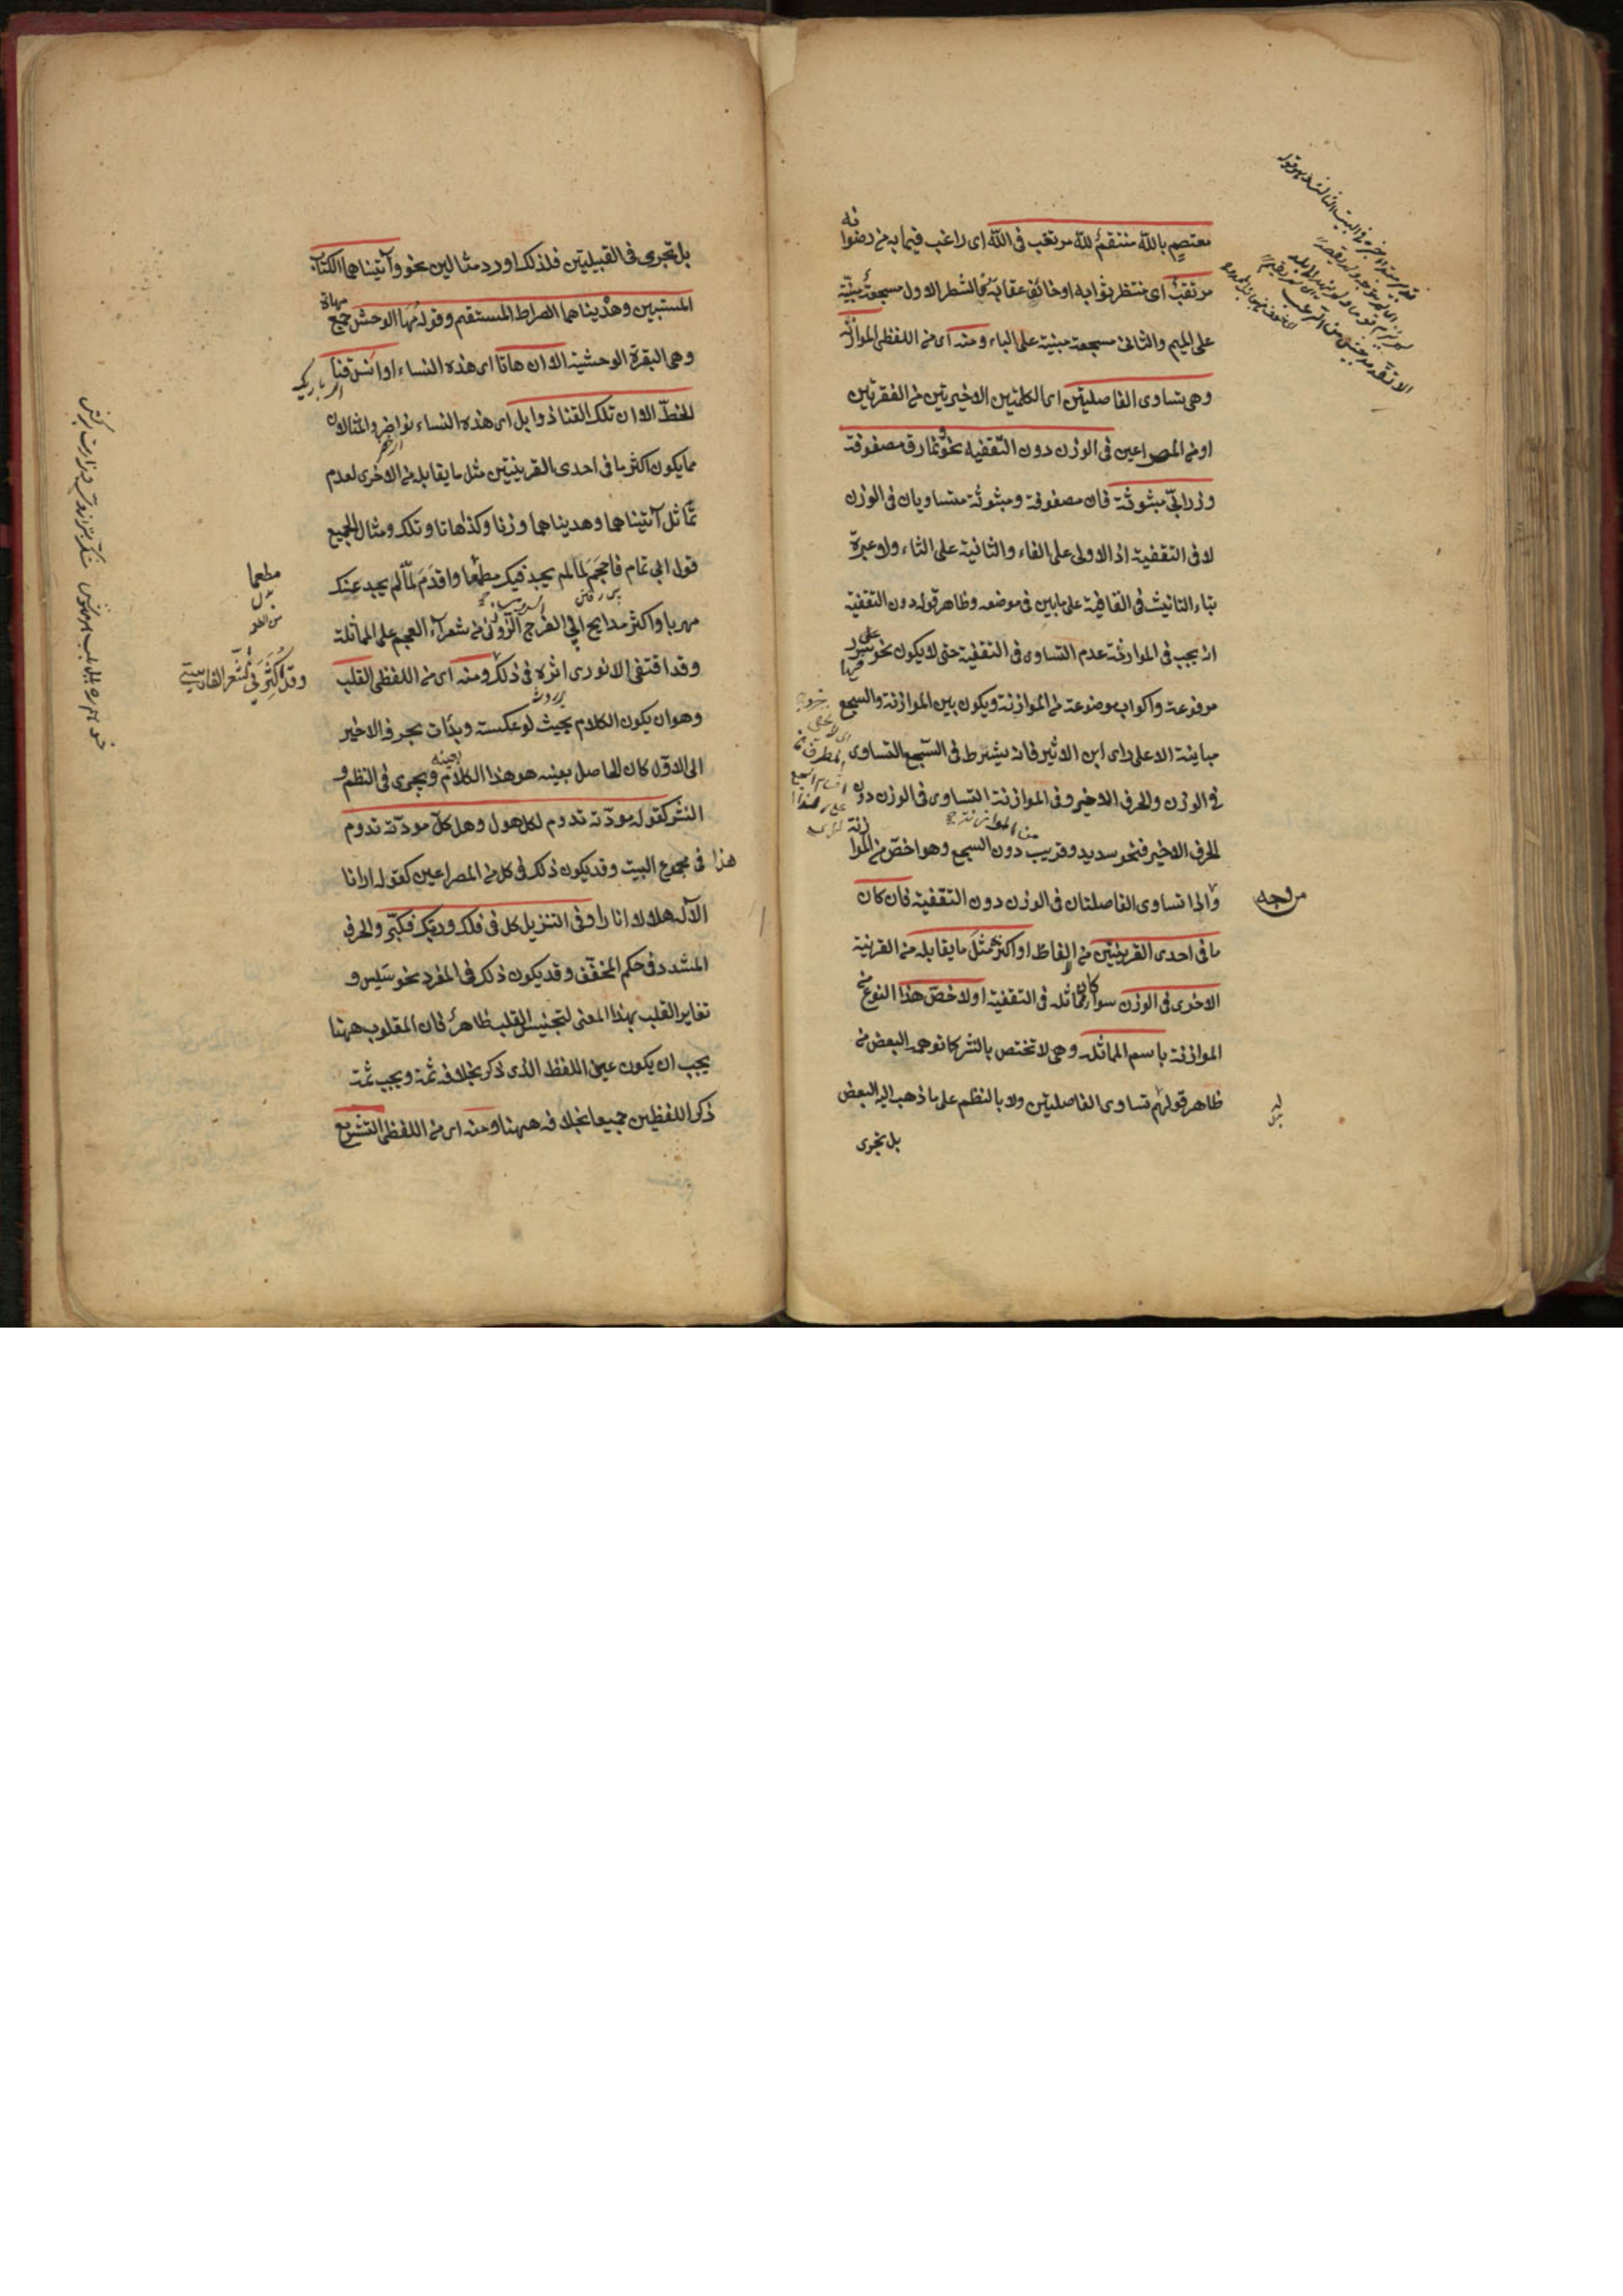 معتصم بالله منتقم لله مرتغب فى الله اى راغب فيما به من رضوانه
مرتقب اى منتظر ثوابه او خائف عقابه فالشطر الاول مسجعة مبنية
على الميم والثانى مسجعة مبنية على الباء ومنه اى من اللفظى الموازنة
وهى تساوى الفاصلتين اى الكلمتين الاخيرتين من الفقرتين
او من المصراعين فى الوزن دون التقفيه نحو ونمارق مصفوفة
وزرابىّ مبثوثة فان مصفوفة ومبثوثة متساويان فى الوزن
لا فى التقفية اذ الاولى على الفاء والثانية على الثاء ولا عبرة
بتاء التانيث فى القافية على ما بين فى موضعه وظاهر قوله دون التقفية
انه يجب فى الموازنة عدم التساوى فى التقفية حتى لا يكون نحو فيها سرر
مرفوعة واكواب موضوعة من الموازنة ويكون بين الموازنة والسجع
مباينة الا على راى ابن الاثير فانه يشترط فى السجع التساوى
فى الوزن والحرف الاخير وفى الموازنة التساوى فى الوزن دون
الحرف الاخير فنحو سديد وقريب دون السجع وهو اخص من الموازنة
واذا تساوى الفاصلتان فى الوزن دون التقفية فان كان
ما فى احدى القرينتين من الفاظ او اكثره مثل ما يقابله من القرينة
الاخرى فى الوزن سواء كان مماثله فى التقفية اولا خص هذا النوع من
الموازنة باسم المماثلة وهى لا تختص بالنثر كما توهمه البعض من
ظاهر قولهم تساوى الفاصلتين ولا بالنظم على ما ذهب اليه البعض
بل تجرى
بل تجرى فى القبيلتين فلذلك اورد مثالين نحو وآتيناهما الكتاب
المستبين وهديناهما الصراط المستقيم وقوله مها الوحش جمع مهاة
وهى البقرة الوحشية الا ان هاتا اى هذه النساء اوانس قنا
الخط الا ان تلك القنا ذوابل اى هذه النساء نواضر والمثالان
مما يكون اكثر ما فى احدى القرينتين مثل ما يقابله من الاخرى لعدم
تماثل آتيناهما وهديناهما وزنا وكذا هاتا وتلك ومثال الجميع
قول ابى تمام فاحجم لما لم يجد فيك مطمعا واقدم لما لم يجد عنك
مهربا واكثر مدايح ابى الفرج الرونى من شعراء العجم على المماثلة
وقد اقتفى الانورى اثره فى ذلك ومنه اى من اللفظى القلب
وهو ان يكون الكلام بحيث لو عكسته وبدات بحرف الاخير
الى الاول كان الحاصل بعينه هو هذا الكلام ويجرى فى النظم و
النثر كقوله مودته تدوم لكل هول وهل كل مودته تدوم
هذا فى مجموع البيت وقد يكون ذلك فى كل من المصراعين كقوله ارانا
الآله هلالا انارا وفى التنزيل كل فى فلك وربك فكبر والحرف
المشدد فى حكم المخفف وقد يكون ذلك فى المفرد نحو سلس و
تغاير القلب بهذا المعنى لتجنيس القلب ظاهر فان المقلوب ههنا
يجب ان يكون عين اللفظ الذى ذكر بخلافه ثمة ويجب ثمة
ذكر اللفظين جميعا بخلافه ههنا ومنه اى من اللفظى التشريع
مطمعا
وقد اكثر فى الشعر الفارسية